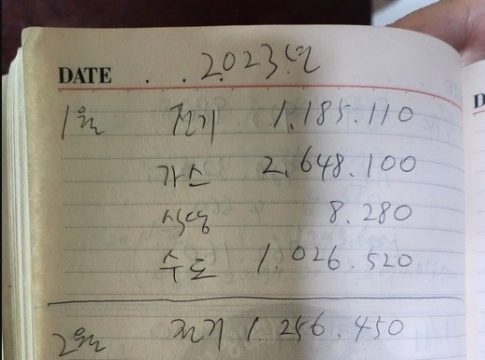 DATE . . . 2023년
1월 전기 1.185.110
가스 2.648.100
식당 8.280
수도 1.026.520
2월 전기 1.256.450
D